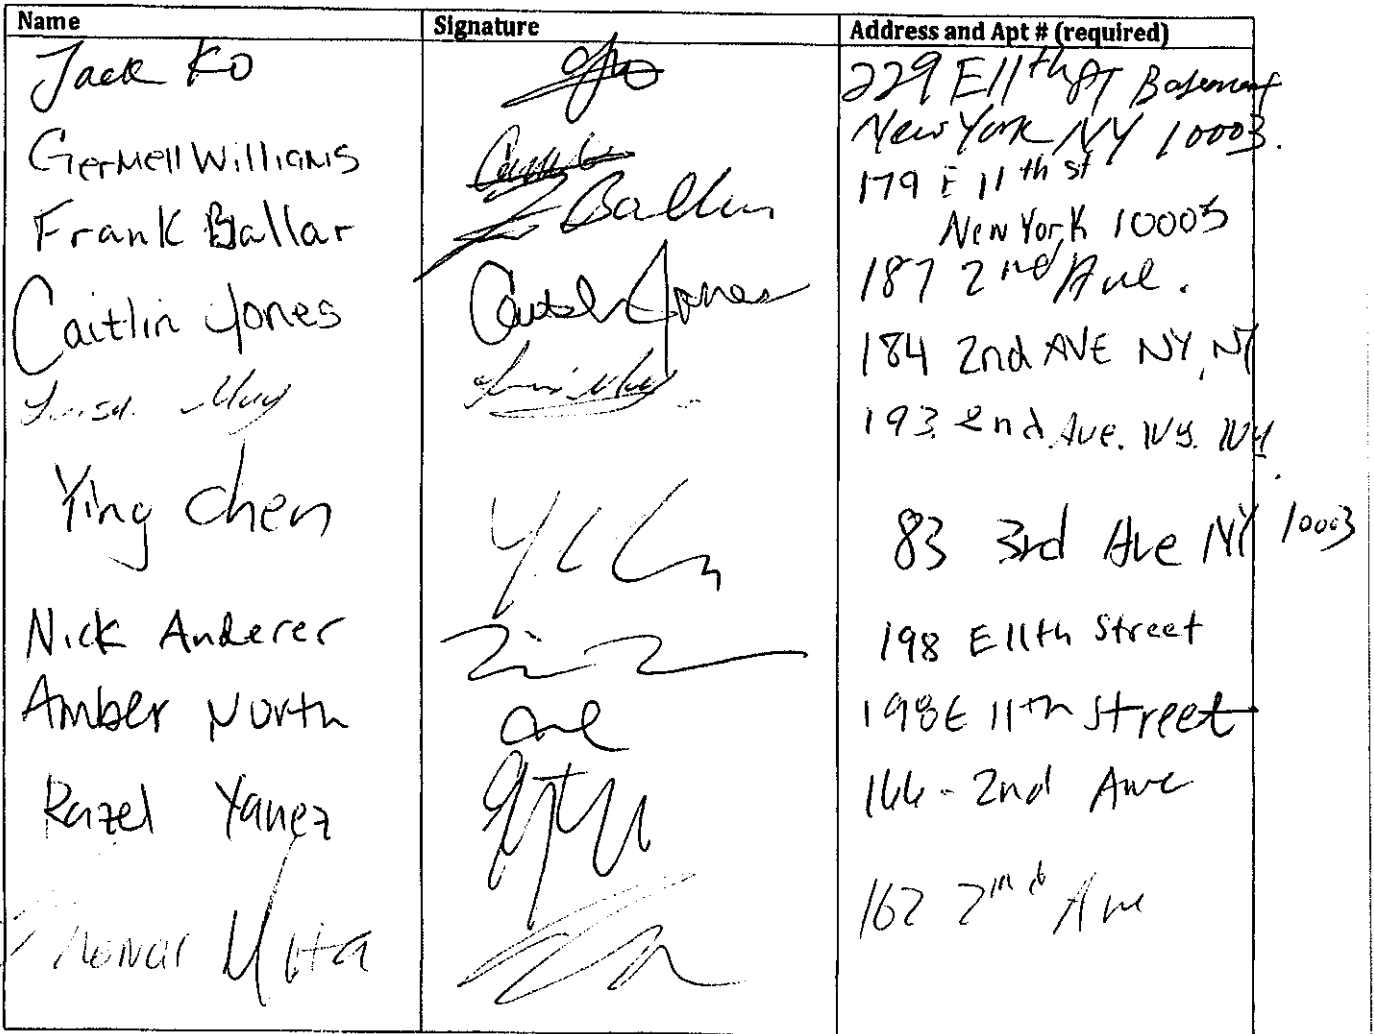 Name Signature Address and Apt # (required)
Jack Ko 229 E 11th ST Basement
New York NY 10003.
Germell Williams 179 E 11th st
New York 10003
Frank Ballar F Ballar 187 2nd Ave.
Caitlin Jones Caitlin Jones 184 2nd AVE NY, NY
May 193 2nd Ave. NY. NY
Ying Chen 83 3rd Ave NY 10003
Nick Anderer 198 E 11th Street
Amber North 198 E 11th Street
Razel Yanez 166 - 2nd Ave
162 2nd Ave